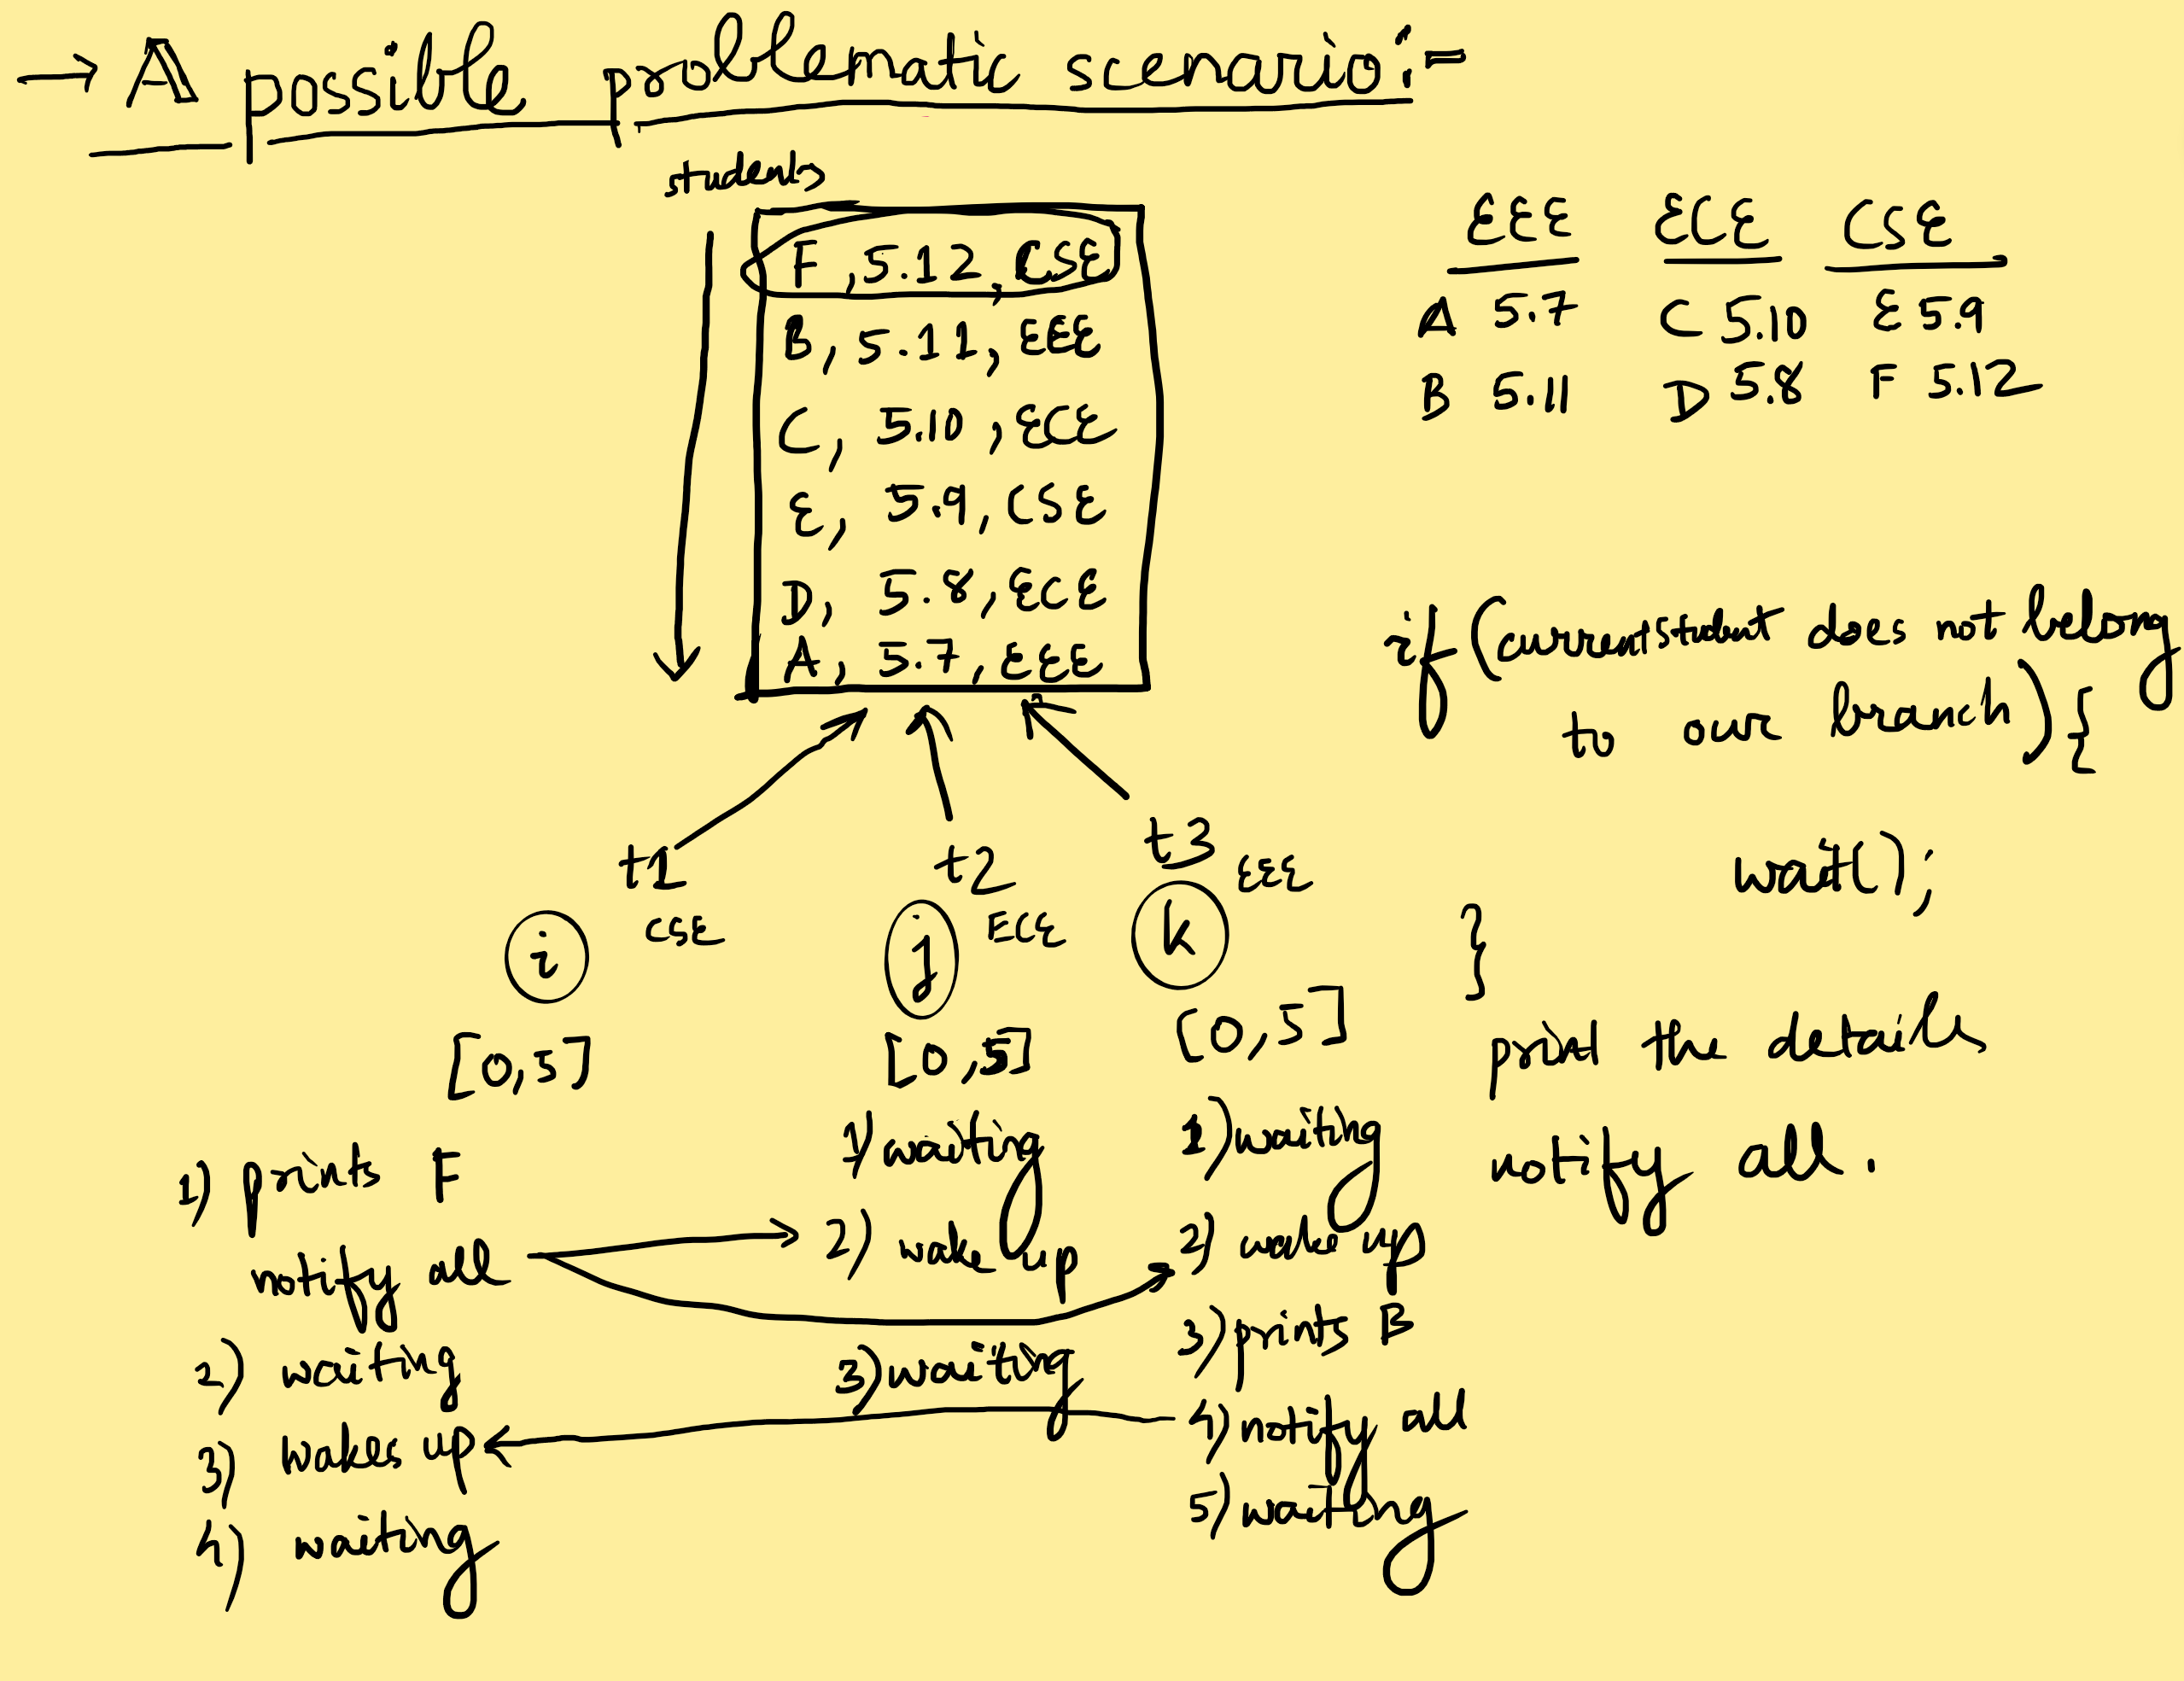 → A possible problematic scenario:-
students
F, 5.12, CSE
B, 5.11, EEE
C, 5.10, ECE
E, 5.9, CSE
D, 5.8, ECE
A, 5.7, EEE
EEE ECE CSE
A 5.7 C 5.10 E 5.9
B 5.11 D 5.8 F 5.12
if (current student does not belong
to our branch) {
wait();
}
print the details
notify all.
t1 t2 t3
CSE ECE EEE
i j k
[0,5] [0,5] [0,5]
1) prints F
notify all
2) waiting
3) wakes up
4) waiting
1) waiting
2) wake up
3) waiting
1) waiting
2) wakes up
3) prints B
4) notify all
5) waiting